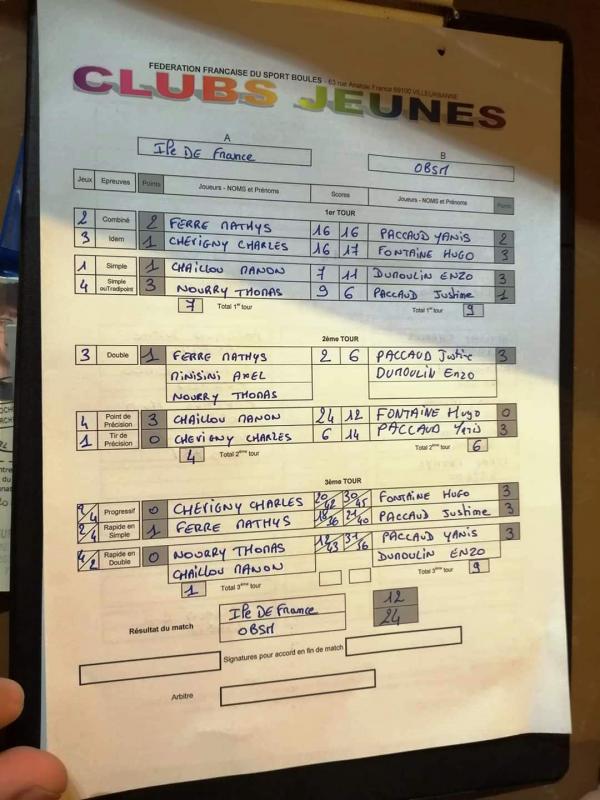 FEDERATION FRANCAISE DU SPORT BOULES - 63 rue Anatole France 69100 VILLEURBANNE
CLUBS JEUNES
A B
IPe DE FRance OBSM
Jeux Epreuves Points Joueurs - NOMS et Prénoms Scores Joueurs - NOMS et Prénoms Points
1er TOUR
2 Combiné 2 FERRE MATHYS 16 16 PACCAUD YANIS 2
3 Idem 1 CHEVIGNY CHARLES 16 17 FONTAINE HUGO 3
1 Simple 1 CHAILLOU MANON 7 11 DUMOULIN ENZO 3
4 Simple ouTradipoint 3 NOURRY THOMAS 9 6 PACCAUD Justine 1
7 Total 1er tour Total 1er tour 9
2ème TOUR
3 Double 1 FERRE MATHYS 2 6 PACCAUD Justine 3
MINISINI AXEL DUMOULIN ENZO
NOURRY THOMAS
4 Point de Précision 3 CHAILLOU MANON 24 12 FONTAINE Hugo 0
1 Tir de Précision 0 CHEVIGNY CHARLES 6 14 PACCAUD Yanis 3
4 Total 2ème tour Total 2ème tour 6
3ème TOUR
/4 Progressif 0 CHEVIGNY CHARLES 20/42 30/45 FONTAINE HUGO 3
2/4 Rapide en Simple 1 FERRE MATHYS 18/36 21/40 PACCAUD Justine 3
4/2 Rapide en Double 0 NOURRY THOMAS 12/43 31/36 PACCAUD YANIS 3
CHAILLOU MANON DUMOULIN ENZO
1 Total 3ème tour Total 3ème tour 9
IPe DE FRance 12
Résultat du match OBSM 24
Signatures pour accord en fin de match
Arbitre